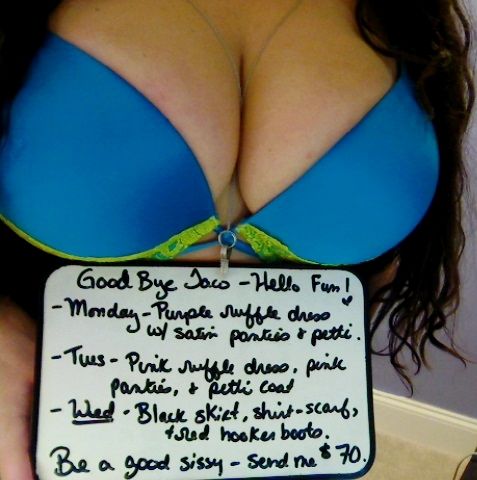 Good Bye Taco - Hello Fun!
- Monday - Purple ruffle dress
w/ satin panties & petti.
- Tues - Pink ruffle dress, pink
panties, & petti coat
- Wed - Black skirt, shirt-scarf,
& red hooker boots.
Be a good sissy - send me $70.